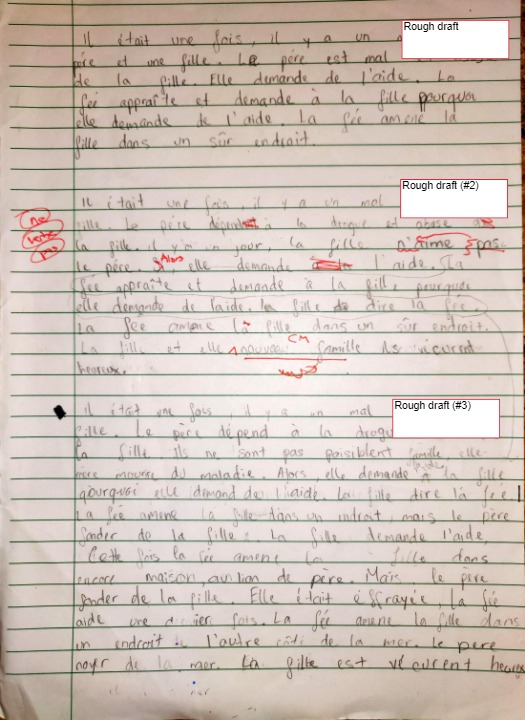 Rough draft
Il était une fois, il y a un
père et une fille. Le père est mal
de la fille. Elle demande de l'aide. La
fée appraîte et demande à la fille pourquoi
elle demande de l'aide. La fée amene la
fille dans un sûr endroit.
Rough draft (#2)
Il était une fois, il y a un mal
fille. Le père à la drogue et
la fille. il y'a un jour, la fille pas
le père. Alors elle demande l'aide. La
fée appraîte et demande à la fille pourquoi
elle demande de l'aide. la fille dire la fée.
La fée amene la fille dans un sûr endroit.
La fille et elle CM famille ils vécurent
heureux.
Rough draft (#3)
Il était une fois, il y a un mal
fille. Le père dépend à la drogue
la fille. ils ne sont pas paisiblent famille. elle
mère mourre du maladie. Alors elle demande à la fille
pourquoi elle demand de l'aide. La fille dire la fée.
La fée amene la fille dans un indroit, mais le père
fonder de la fille. La fille demande l'aide,
Cette fois la fée amene la fille dans
encore maison, de père. Mais le père
fonder de la fille. Elle était effrayée, La fée
aide une fois. La fée amene la fille dans
un endroit l'autre côté de la mer. le pere
noyr de la mer. La fille est vécurent heureux